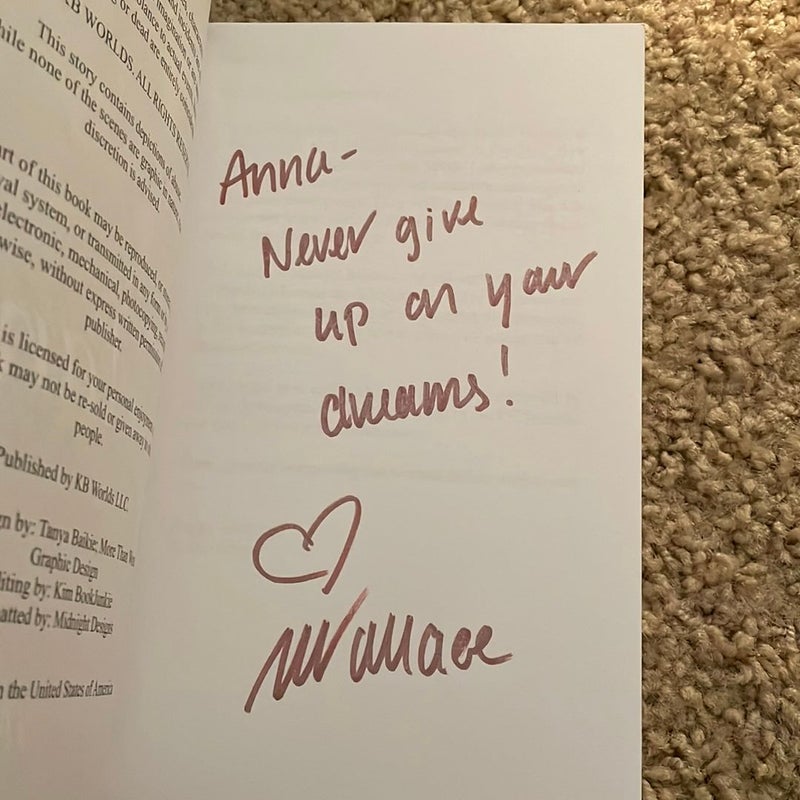 KB WORLDS. ALL RIGHTS
This story contains depictions of
while none of the scenes are graphic in
discretion is advised.
of this book may be reproduced,
system, or transmitted in any form
electronic, mechanical, photocopying,
without express written
publisher.
is licensed for your personal
may not be re-sold or given away
people.
Published by KB Worlds LLC.
by: Tanya Baikie; More That
Graphic Design
by: Kim BookJunkie
by: Midnight Designs
the United States of America
Anna-
Never give
up on your
dreams!
Wallace